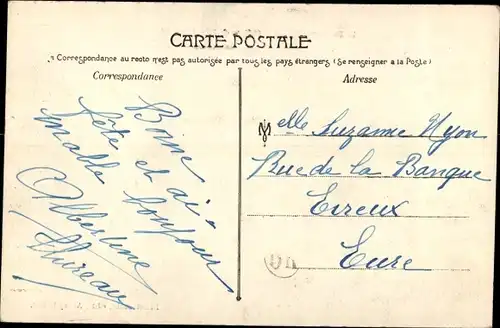 CARTE POSTALE
Correspondance au recto n'est pas autorisée par tous les pays étrangers (Se renseigner à la Poste)
Correspondance
Adresse
Bonne
fête et ai-
mable bonjour
Albertine
Melle Suzanne Nyon
Rue de la Banque
Evreux
Eure